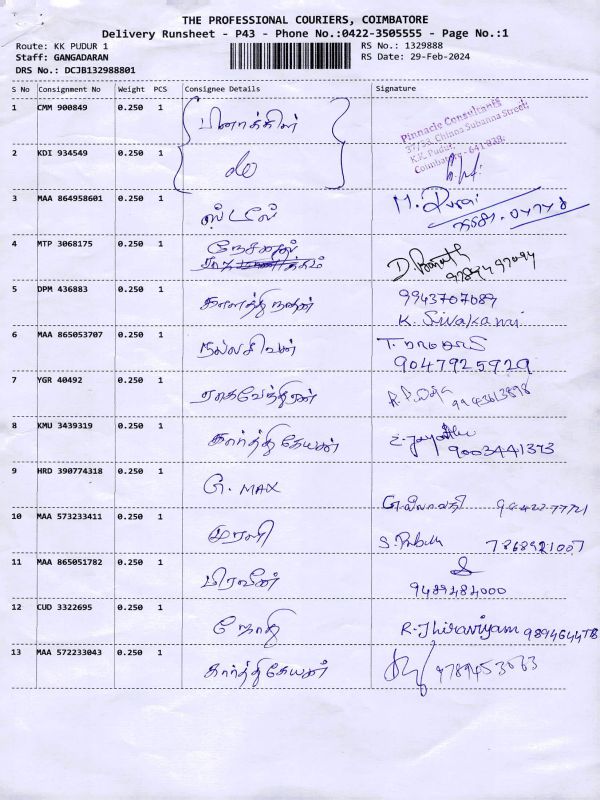 THE PROFESSIONAL COURIERS, COIMBATORE
Delivery Runsheet - P43 - Phone No.:0422-3505555 - Page No.:1
Route: KK PUDUR 1
RS No.: 1329888
Staff: GANGADARAN
RS Date: 29-Feb-2024
DRS No.: DCJB132988801
S No Consignment No Weight PCS Consignee Details Signature
1 CMM 900849 0.250 1 பினாக்கிள்
Pinnacle Consultants
37/58, Chinna Subanna Street,
K.K. Pudur,
Coimbatore - 641 038.
2 KDI 934549 0.250 1 do
3 MAA 864958601 0.250 1 M. Durai
4 MTP 3068175 0.250 1
5 DPM 436883 0.250 1 9943707089
K. Sivakami
6 MAA 865053707 0.250 1 நல்லசிவன்
9047925929
7 YGR 40492 0.250 1 ராகவேந்திரன்
8 KMU 3439319 0.250 1 கார்த்திகேயன் 9003441373
9 HRD 390774318 0.250 1 G. MAX
10 MAA 573233411 0.250 1 முரளி 7868921007
11 MAA 865051782 0.250 1 பிரவீன்
9489484000
12 CUD 3322695 0.250 1 ஜோதி R. Thiraviyam
13 MAA 572233043 0.250 1 கார்த்திகேயன்